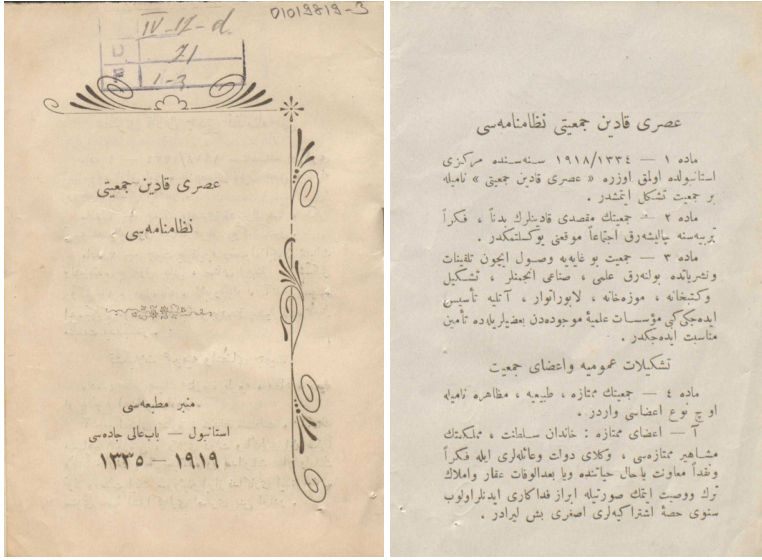 01019819-3
IV-17-d
21
1-3
عصری قادین جمعیتی
نظامنامه‌سی
منبر مطبعه‌سی
استانبول — باب عالی جاده‌سی
١٩١٩ — ١٣٣٥
عصری قادین جمعیتی نظامنامه‌سی
ماده ١ — ١٩١٨/١٣٣٤ سنه‌سنده مرکزی
استانبولده اولمق اوزره « عصری قادین جمعیتی » نامیله
بر جمعیت تشکل ایتمشدر .
ماده ٢ — جمعیتك مقصدی قادینلرك بدناً ، فکراً
تربیه‌سنه چالیشه‌رق اجتماعاً موقعنی یوکسلتمکدر .
ماده ٣ — جمعیت بو غایه‌یه وصول ایچون تلقینات
ونشریاتده بولنه‌رق علمی ، صناعی انجمنلر ، تشکیل
وکتبخانه ، موزه‌خانه ، لابوراتوار ، آتلیه تأسیس
ایده‌جکی کبی مؤسسات علمیهٔ موجوده‌دن بعضیلریله‌ده تأمین
مناسبت ایده‌جکدر .
تشکیلات عمومیه واعضای جمعیت
ماده ٤ — جمعیتك ممتازه ، طبیعیه ، مظاهره نامیله
اوچ نوع اعضاسی واردر .
آ — اعضای ممتازه : خاندان سلطنت ، مملکتك
مشاهیر ممتازه‌سی ، وکلای دولت وعائله‌لری ایله فکراً
ونقداً معاونت یاحال حیاتنده ویا بعدالوفات عقار واملاك
ترك ووصیت ایتمك صورتیله ابراز فداکاری ایدنلراولوب
سنوی حصهٔ اشتراکیه‌لری اصغری بش لیرادر .